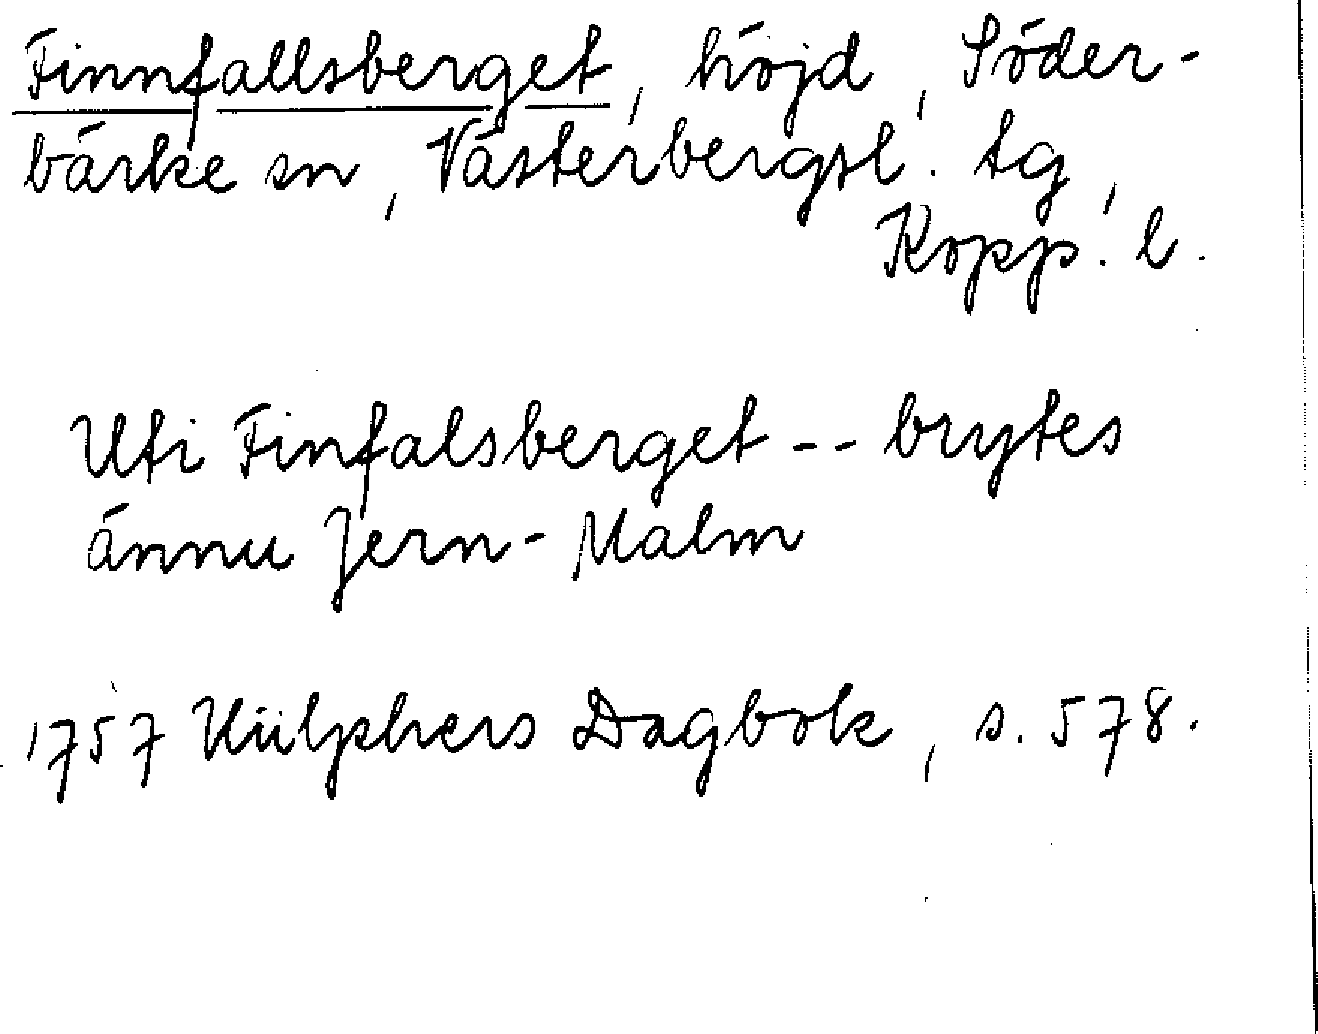 Finnfallsberget, höjd, Söder-
bärke sn, Västerbergsl. tg,
Kopp. l.
Uti Finfalsberget -- brytes
ännu Jern-Malm
1757 Hülphers Dagbok, s. 578.